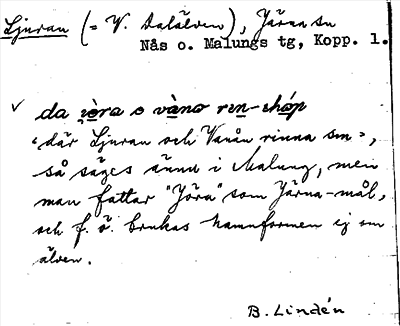 Ljuran (= V. Dalälven), Järna sn
Nås o. Malungs tg, Kopp. l.
✓ da jòra o vàno rin-ihóp
"där Ljuran och Vanån rinna sm",
så säges ännu i Malung, men
man fattar "Jöra" som Järna-mål,
och f. ö. brukas namnformen ej om
älven.
B. Lindén